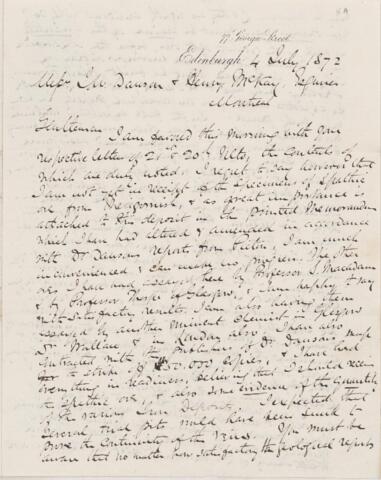 77 George Street
Edinburgh 4 July 1872
Messrs J. W. Dawson & Henry McKay, Esquires
Montreal
Gentlemen
I am favored this morning with your
respective letter of 21st & 20th Ulto, the contents of
which are duly noted. I regret to say however that
I am not yet in receipt of the Specimens of Spathic
ore from, & as great importance is
attached to this deposit in the printed Memorandum
which I have had altered & amended in accordance
with Dr Dawsons report from Pictou, I am much
inconvenienced & can make no progress. The other
ores I have had assayed here by Professor S. Macadam
& by Professor of Glasgow, I am happy to say
with satisfactory results, I am also having them
assayed by another eminent chemist in Glasgow
Dr Wallace & in London also. I have also
contracted with the Publishers of Dr Dawsons map
to strike off 50,000 copies, & I have had
everything in readiness, believing that I should receive
the Spathic ore, & also some evidence of the quantity
of the various Iron Deposits. I expected that
several trial pits would have been sunk to
prove the continuity of the veins. You must be
aware that no matter how satisfactory the geological reports